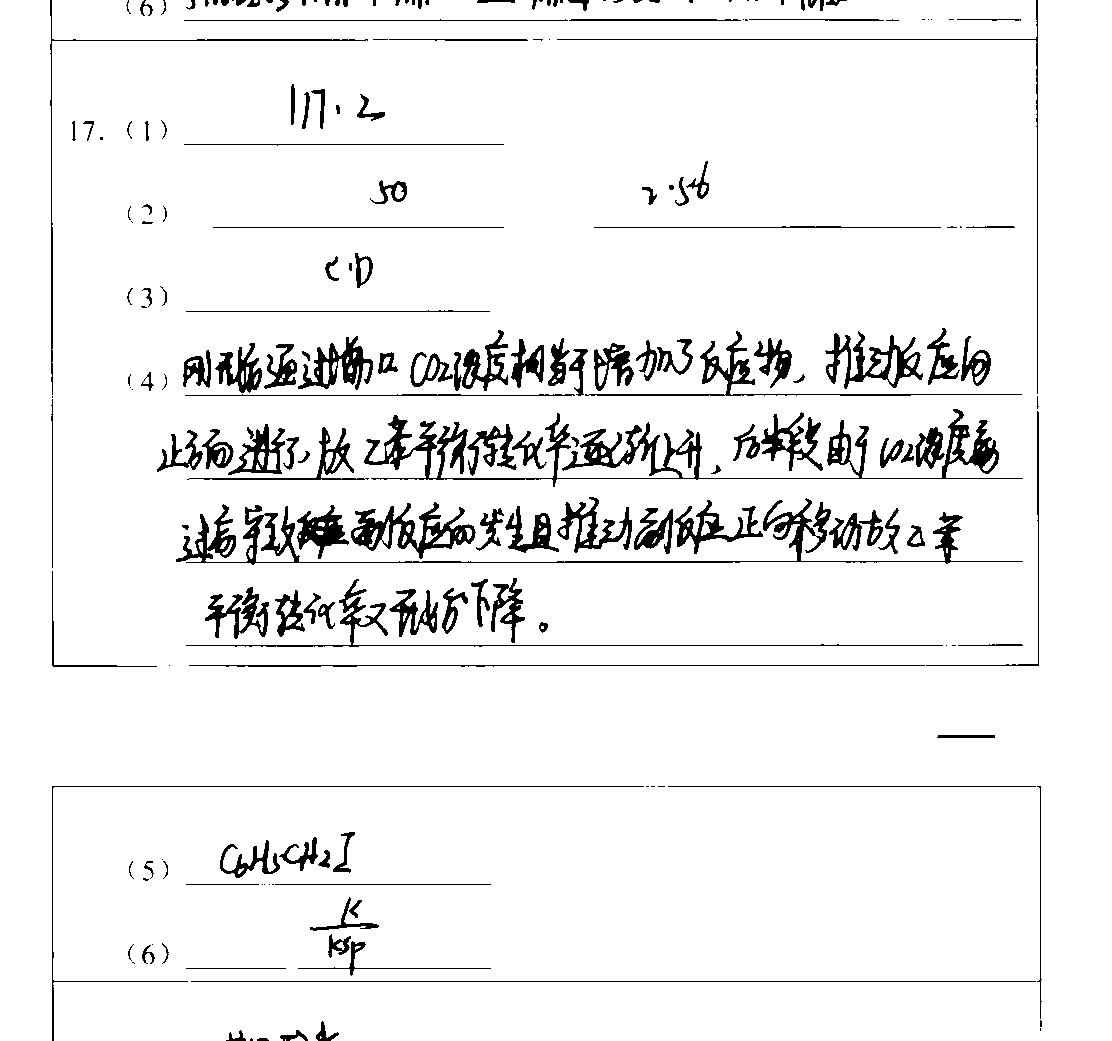 (6)
17. (1) 117.2
(2) 50 2.56
(3) C.D
(4) 刚开始通过增加 CO2浓度相当于增加了反应物，推动反应向
正方向进行，故乙苯平衡转化率逐渐上升，后半段由于CO2浓度
过高导致 副反应的发生且推动副反应正向移动故乙苯
平衡转化率又开始下降。
(5) C6H5CH2I
(6) K/Ksp